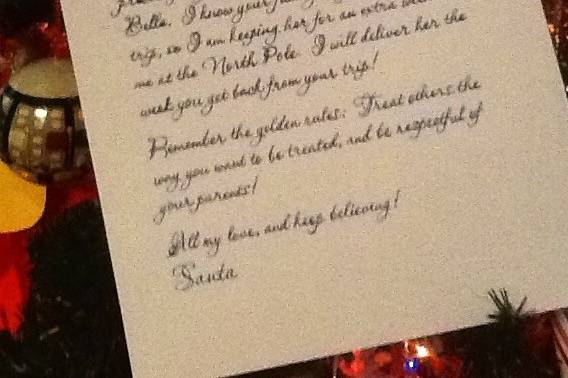 Bella. I know your
trip, so I am keeping her for an extra
me at the North Pole. I will deliver her the
week you get back from your trip!
Remember the golden rules: Treat others the
way you want to be treated, and be respectful of
your parents!
All my love, and keep believing!
Santa